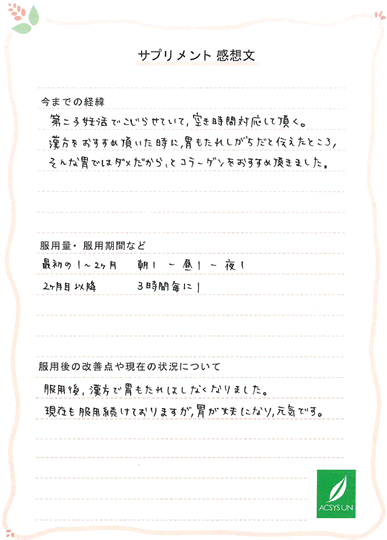 サプリメント 感想文
今までの経緯
第二子妊活でこじらせていて、空き時間対応して頂く。
漢方をおすすめ頂いた時に、胃もたれしがちだと伝えたところ、
そんな胃ではダメだから、とコラーゲンをおすすめ頂きました。
服用量・服用期間など
最初の1〜2ヶ月 朝1 - 昼1 - 夜1
2ヶ月目以降 3時間毎に1
服用後の改善点や現在の状況について
服用後、漢方で胃もたれはしなくなりました。
現在も服用続けておりますが、胃が丈夫になり、元気です。
ACSYSUN